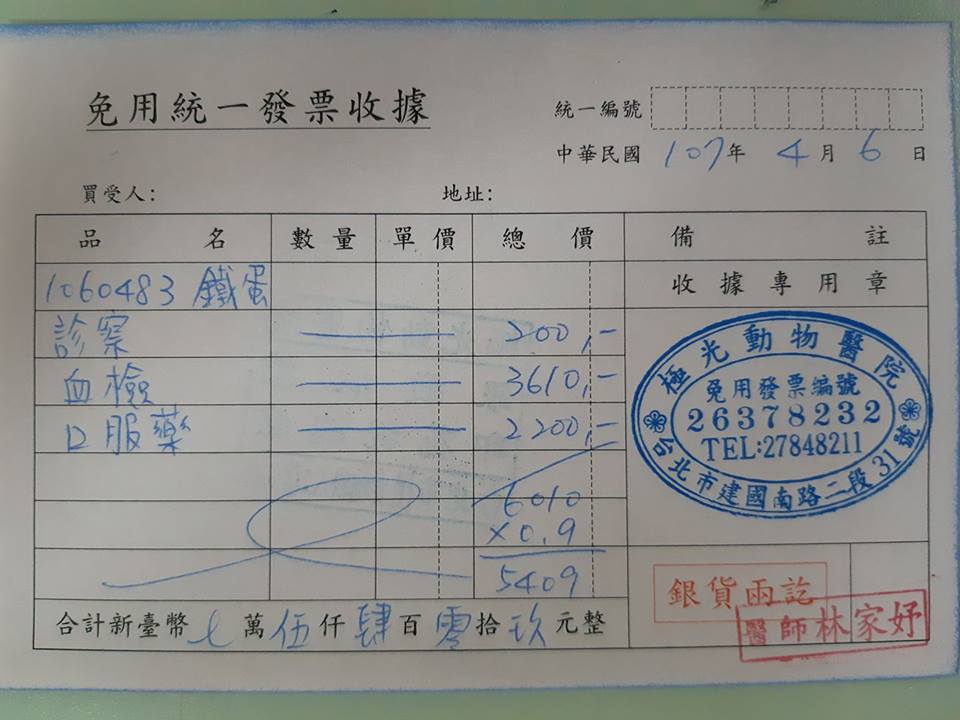 免用統一發票收據
統一編號
中華民國 107年 4月 6日
買受人： 地址：
品名 數量 單價 總價 備註
1060483 鐵蛋 收據專用章
診察 200,-
血檢 3610,-
口服藥 2200,=
6010
×0.9
5409
極光動物醫院
免用發票編號
26378232
TEL:27848211
台北市建國南路二段31號
銀貨兩訖
醫師林家妤
合計新臺幣 萬伍仟肆百零拾玖元整